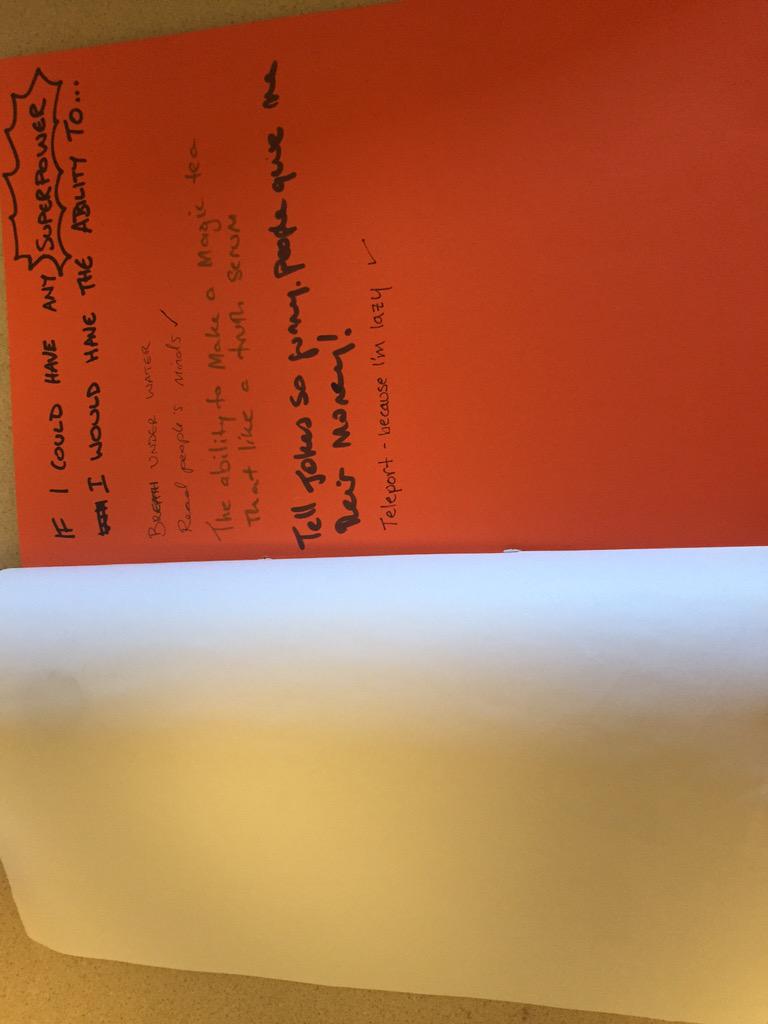 IF I COULD HAVE ANY SUPERPOWER
I WOULD HAVE THE ABILITY TO...
BREATH UNDER WATER
Read people's minds ✓
The ability to Make a Magic tea
that like a truth serum
Tell jokes so funny, people give me
their money!
Teleport - because I'm lazy ✓